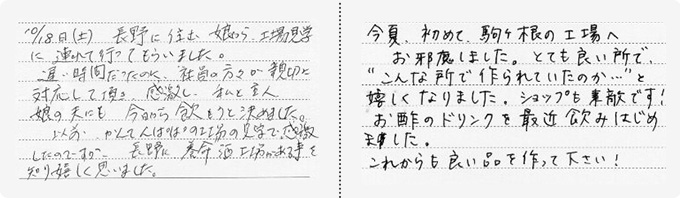 10/18日(土) 長野に住む娘から、工場見学
に連れて行ってもらいました。
遅い時間だったのに、社員の方々が親切に
対応して頂き、感激し、私と主人
娘の夫にも 今日から飲もうと決めました。
以前 かんてんぱぱの工場の見学で感激
したのですが、長野に養命酒工場がある事を
知り嬉しく思いました。
今夏、初めて、駒ヶ根の工場へ
お邪魔しました。とても良い所で、
“こんな所で作られていたのか…”と
嬉しくなりました。ショップも素敵です!
お酢のドリンクを最近飲みはじめ
ました。
これからも良い品を作って下さい!